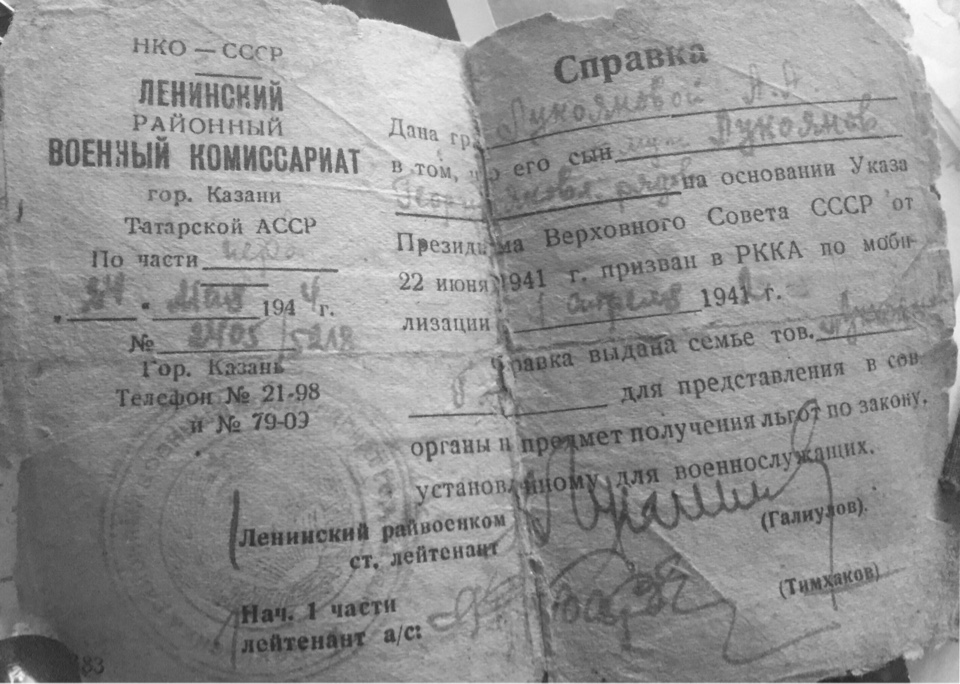 НКО — СССР
ЛЕНИНСКИЙ
РАЙОННЫЙ
ВОЕННЫЙ КОМИССАРИАТ
гор. Казани
Татарской АССР
По части
"24" мая 1944 г.
№ 2405/5218
Гор. Казань
Телефон № 21-98
и № 79-03
Ленинский райвоенком
ст. лейтенант
Нач. 1 части
лейтенант а/с:
83
Справка
Дана гр. Лукояновой А. А.
в том, что его сын муж Лукоянов
на основании Указа
Президиума Верховного Совета СССР от
22 июня 1941 г. призван в РККА по моби-
лизации апреля 1941 г.
Справка выдана семье тов.
для представления в сов
органы и предмет получения льгот по закону,
установленному для военнослужащих.
(Галиулов).
(Тимхаков)